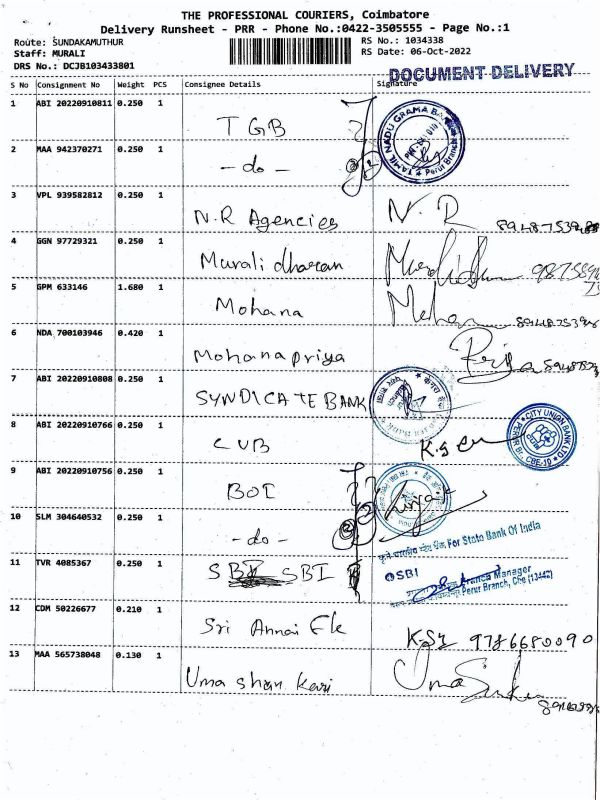 THE PROFESSIONAL COURIERS, Coimbatore
Delivery Runsheet - PRR - Phone No.:0422-3505555 - Page No.:1
Route: SUNDAKAMUTHUR
RS No.: 1034338
Staff: MURALI
RS Date: 06-Oct-2022
DRS No.: DCJB103433801
DOCUMENT DELIVERY
S No Consignment No Weight PCS Consignee Details Signature
1 ABI 20220910811 0.250 1 TGB
TAMIL NADU GRAMA BANK
Perur Branch
2 MAA 942370271 0.250 1 - do -
3 VPL 939582812 0.250 1 N.R Agencies N.R
4 GGN 97729321 0.250 1 Muralidharan
5 GPM 633146 1.680 1 Mohana Mohan
6 NDA 700103946 0.420 1 Mohanapriya Priya
7 ABI 20220910808 0.250 1 SYNDICATE BANK
8 ABI 20220910766 0.250 1 CUB
CITY UNION BANK LTD
PERUR Br. CBE-10
9 ABI 20220910756 0.250 1 BOI
10 SLM 304640532 0.250 1 - do -
For State Bank Of India
11 TVR 4085367 0.250 1 SBI
SBI
Branch Manager
Perur Branch, Cbe (13442)
12 CDM 50226677 0.210 1 Sri Annai Ele 9786680090
13 MAA 565738048 0.130 1 Uma shan kari Uma